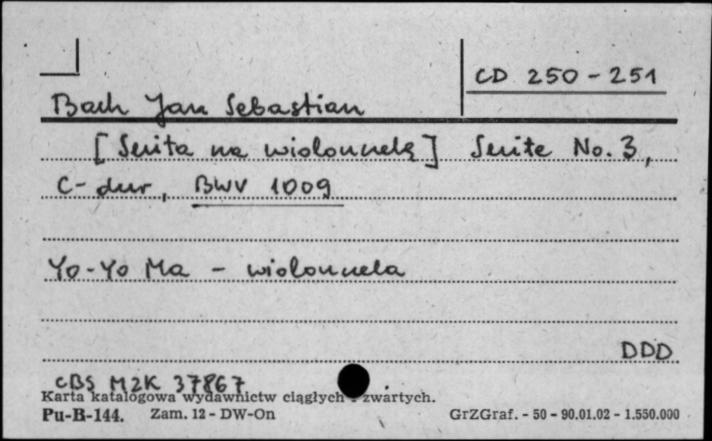 CD 250-251
Bach Jan Sebastian
[Suita na wiolonczelę] Suite No. 3,
C-dur, BWV 1009
Yo-Yo Ma - wiolonczela
DDD
CBS M2K 37867
Karta katalogowa wydawnictw ciągłych i zwartych.
Pu-B-144. Zam. 12 - DW-On GrZGraf. - 50 - 90.01.02 - 1.550.000